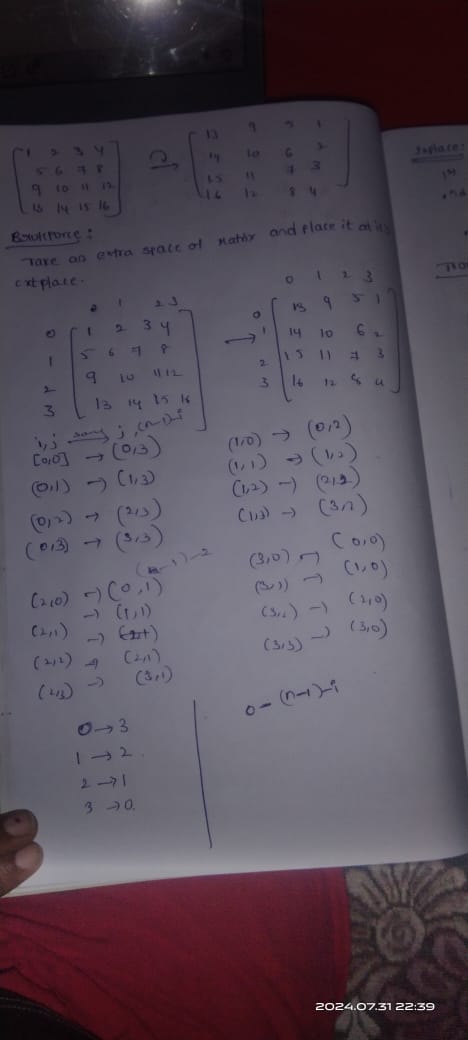 1 2 3 4
5 6 7 8
9 10 11 12
13 14 15 16
→
13 9 5 1
14 10 6 2
15 11 7 3
16 12 8 4
Bruteforce:
Take an extra space of Matrix and place it at it's
0 1 2 3
0 1 2 3 4
1 5 6 7 8
2 9 10 11 12
3 13 14 15 16
→
0 1 2 3
0 13 9 5 1
1 14 10 6 2
2 15 11 7 3
3 16 12 8 4
i,j → j,(n-1)-i
[0,0] → (0,3)
(0,1) → (1,3)
(0,2) → (2,3)
(0,3) → (3,3)
(1,0) → (0,2)
(1,1) → (1,2)
(1,2) → (2,2)
(1,3) → (3,2)
(2,0) → (0,1)
(2,1) → (1,1)
(2,2) → (2,1)
(2,3) → (3,1)
(3,0) → (0,0)
(3,1) → (1,0)
(3,2) → (2,0)
(3,3) → (3,0)
0 → 3
1 → 2
2 → 1
3 → 0.
0 - (n-1)-i
2024.07.31 22:39